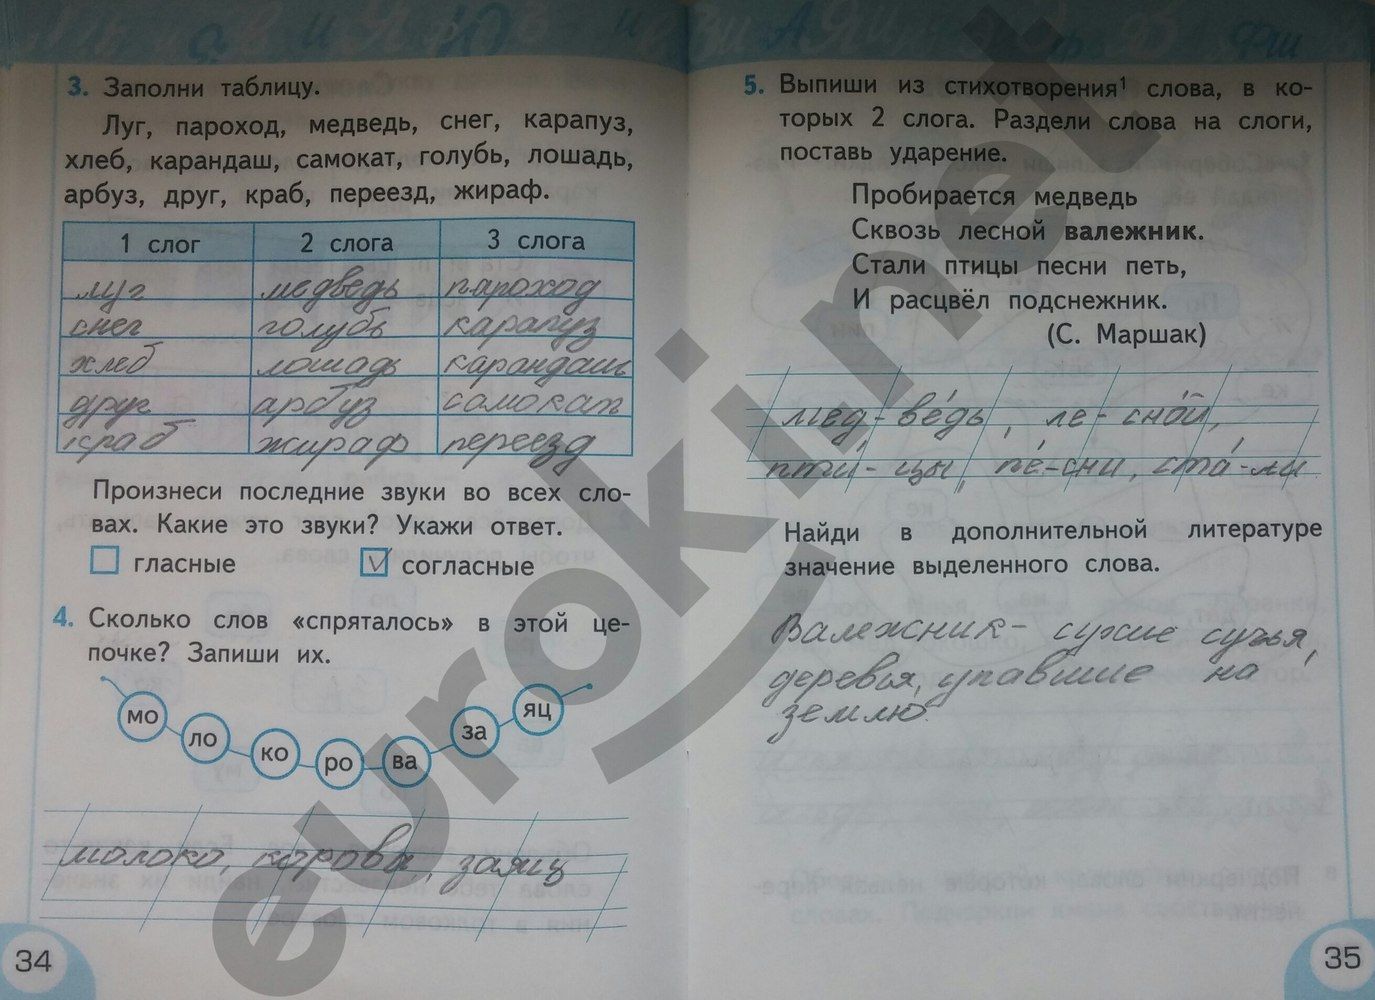 3. Заполни таблицу.
Луг, пароход, медведь, снег, карапуз,
хлеб, карандаш, самокат, голубь, лошадь,
арбуз, друг, краб, переезд, жираф.
1 слог 2 слога 3 слога
луг медведь пароход
снег голубь карапуз
хлеб лошадь карандаш
друг арбуз самокат
краб жираф переезд
Произнеси последние звуки во всех сло-
вах. Какие это звуки? Укажи ответ.
гласные V согласные
4. Сколько слов «спряталось» в этой це-
почке? Запиши их.
мо ло ко ро ва за яц
молоко, корова, заяц
34
5. Выпиши из стихотворения¹ слова, в ко-
торых 2 слога. Раздели слова на слоги,
поставь ударение.
Пробирается медведь
Сквозь лесной валежник.
Стали птицы песни петь,
И расцвёл подснежник.
(С. Маршак)
мед-ве́дь, ле-сно́й,
пти́-цы, пе́-сни, ста́-ли
Найди в дополнительной литературе
значение выделенного слова.
Валежник - сухие сучья,
деревья, упавшие на
землю.
35
eurokin.net